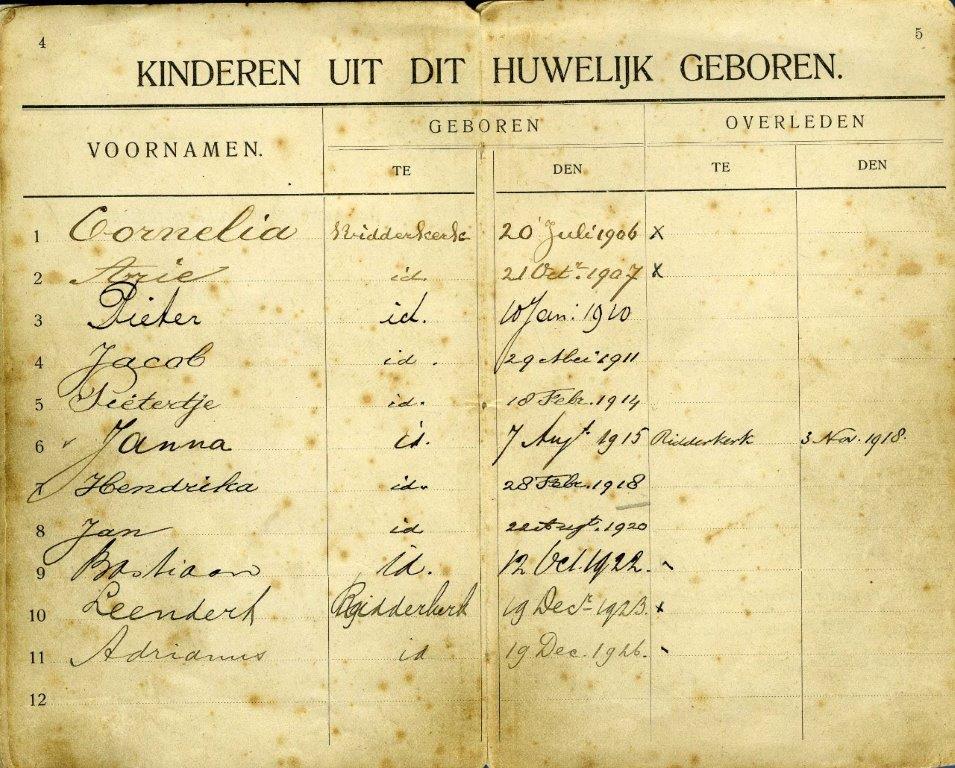 4
5
KINDEREN UIT DIT HUWELIJK GEBOREN.
VOORNAMEN.
GEBOREN
OVERLEDEN
TE
DEN
TE
DEN
1 Cornelia Ridderkerk 20 Juli 1906 x
2 Arie id. 21 Octr. 1907 x
3 Pieter id. 10 Jan: 1910
4 Jacob id. 29 Mei 1911
5 Pietertje id. 18 Febr. 1914
6 Janna id. 7 Augt. 1915 Ridderkerk 3 Nov. 1918.
7 Hendrika id. 28 Febr. 1918
8 Jan id 22 Augt. 1920
9 Bastiaan id. 12 Oct. 1922.
10 Leendert Ridderkerk 19 Decr. 1923. x
11 Adrianus id 19 Dec. 1926.
12